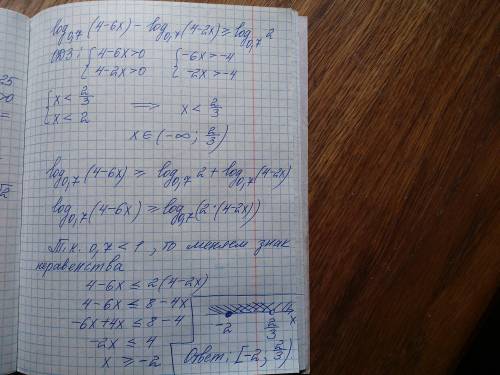 log₀,₇(4-6x) - log₀,₇(4-2x) ≥ log₀,₇2
ОДЗ: { 4-6x>0 { -6x>-4
4-2x>0 -2x>-4
{ x < 2/3 ⟹ x < 2/3
x < 2
x ∈ (-∞; 2/3)
log₀,₇(4-6x) ≥ log₀,₇2 + log₀,₇(4-2x)
log₀,₇(4-6x) ≥ log₀,₇(2·(4-2x))
Т.к. 0,7 < 1, то меняем знак
неравенства
4-6x ≤ 2(4-2x)
4-6x ≤ 8-4x
-6x+4x ≤ 8-4
-2x ≤ 4
x ≥ -2
-2 2/3 x
Ответ: [-2; 2/3)
25
>0
=
√2